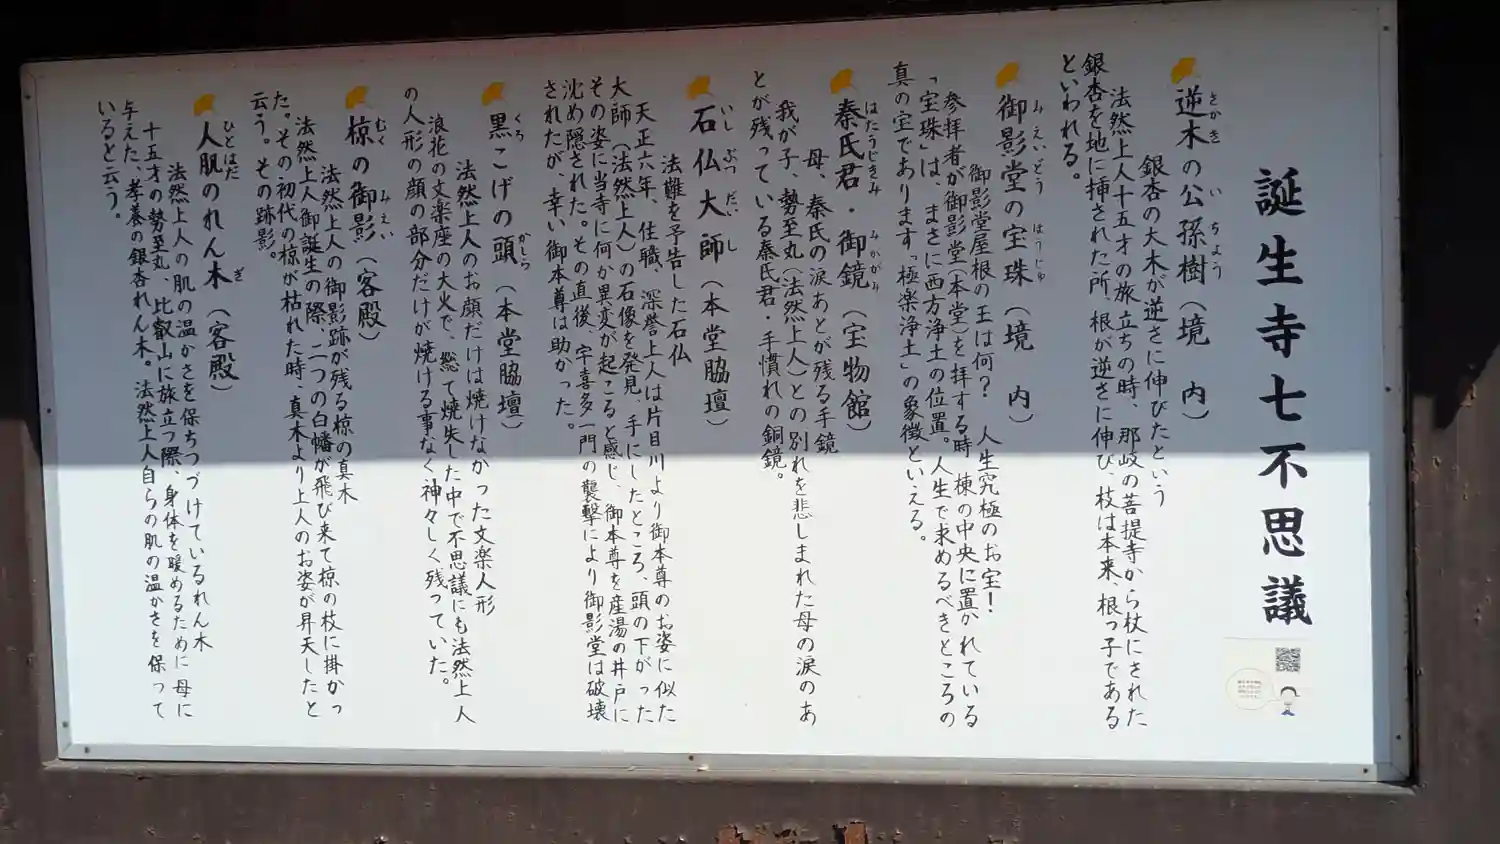 誕生寺七不思議
逆木の公孫樹(境 内)
さかき いちょう
銀杏の大木が逆さに伸びたという
法然上人十五才の旅立ちの時、那岐の菩提寺から杖にされた
銀杏を地に挿された所、根が逆さに伸び、枝は本来、根っ子である
といわれる。
御影堂の宝珠(境 内)
みえいどう ほうじゅ
御影堂屋根の王は何? 人生究極のお宝!
参拝者が御影堂(本堂)を拝する時、棟の中央に置かれている
「宝珠」は、まさに西方浄土の位置。人生で求めるべきところの
真の宝であります「極楽浄土」の象徴といえる。
秦氏君・御鏡(宝物館)
はたうじきみ みかがみ
母、秦氏の涙あとが残る手鏡
我が子、勢至丸(法然上人)との別れを悲しまれた母の涙のあ
とが残っている秦氏君・手慣れの銅鏡。
石仏大師(本堂脇壇)
いしぶつだいし
法難を予告した石仏
天正六年、住職、深誉上人は片目川より御本尊のお姿に似た
大師(法然上人)の石像を発見、手にしたところ、頭の下がった
その姿に当寺に何か異変が起こると感じ、御本尊を産湯の井戸に
沈め隠された。その直後、宇喜多一門の襲撃により御影堂は破壊
されたが、幸い御本尊は助かった。
黒こげの頭(本堂脇壇)
くろ かしら
法然上人のお顔だけは焼けなかった文楽人形
浪花の文楽座の大火で、総て焼失した中で不思議にも法然上人
の人形の顔の部分だけが焼ける事なく神々しく残っていた。
椋の御影(客殿)
むく みえい
法然上人の御影跡が残る椋の真木
法然上人御誕生の際、二つの白幡が飛び来て椋の枝に掛かっ
た。その初代の椋が枯れた時、真木より上人のお姿が昇天したと
云う。その跡影。
人肌のれん木(客殿)
ひとはだ ぎ
法然上人の肌の温かさを保ちつづけているれん木
十五才の勢至丸、比叡山に旅立つ際、身体を暖めるために母に
与えた、孝養の銀杏れん木。法然上人自らの肌の温かさを保って
いると云う。